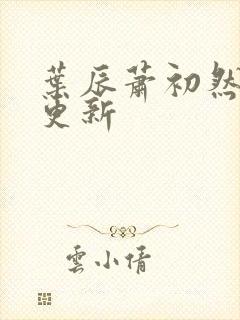 葉辰蕭初然
更新
雲小倩